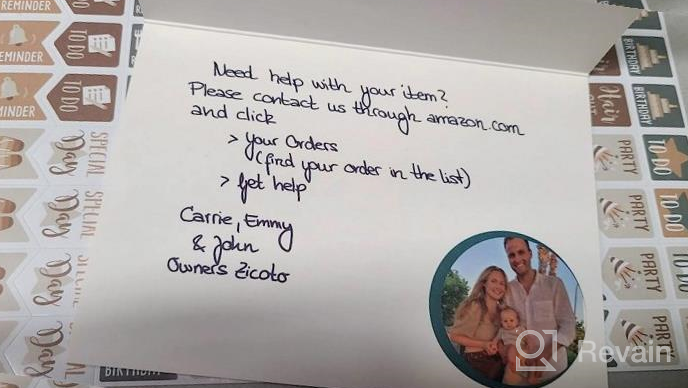 Need help with your item?
Please contact us through amazon.com
and click
> Your Orders
(find your order in the list)
> Get help
Carrie, Emmy
& John
Owners Zicoto
EMINDER
TO DO
REMINDER
TO DO
SPECIAL
Day
SPECIAL
Day
SPECIAL
Day
BIRTHDAY
BIRTHDAY
Hair
BIRTHDAY
PARTY
TO DO
PARTY
TO DO
PARTY
PARTY
Revain